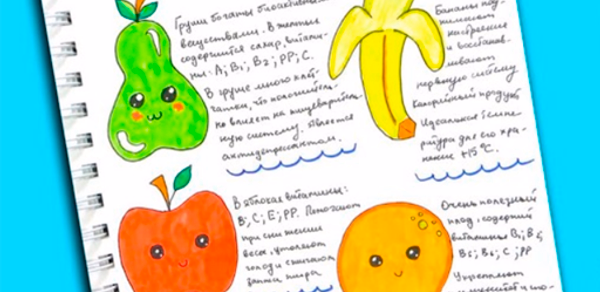 Груши богаты биоактивными
веществами. В желтых
содержится сахар, витами-
ны: A; B1; B2; PP; C.
В груше много клет-
чатки, что положитель-
но влияет на пищеваритель-
ную систему. Является
антидепрессантом.
Бананы под-
нимают
настроение
и восстанав-
ливают
нервную систему.
Калорийный продукт.
Идеальная темпе-
ратура для его хра-
нения +15°C.
В яблоках витамины:
B; C; E; PP. Помогают
при снижении
веса, утоляют
голод и сжигают
запасы жира.
Очень полезный
плод, содержит
витамины B1; B2
B5; B6; C; PP
Укрепляют